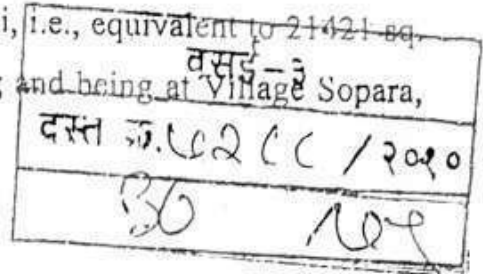 i, i.e., equivalent to 21421 sq.
वसई-३
and being at Village Sopara,
दस्त क्र. ५२८८ / २०१०
३७